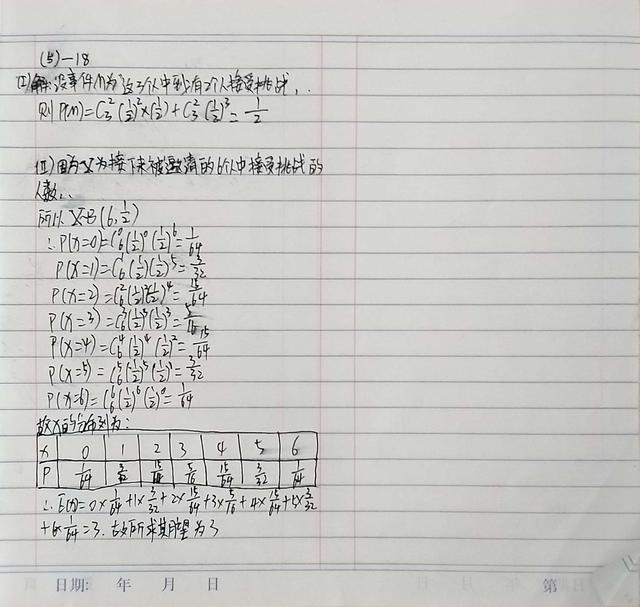 (5)-18
(I)解:设事件M为"这3个人中到少有2个人接受挑战",∴
则P(M)=C₃²(1/2)²×(1/2)+C₃²(1/2)³=1/2
(II)因为X为接下来被邀请的6个人中接受挑战的
人数,∴
所以X~B(6,1/2)
∴P(X=0)=C₆⁰(1/2)⁰(1/2)⁶=1/64
P(X=1)=C₆¹(1/2)(1/2)⁵=3/32
P(X=2)=C₆²(1/2)²(1/2)⁴=15/64
P(X=3)=C₆³(1/2)³(1/2)³=5/16
P(X=4)=C₆⁴(1/2)⁴(1/2)²=15/64
P(X=5)=C₆⁵(1/2)⁵(1/2)¹=3/32
P(X=6)=C₆⁶(1/2)⁶(1/2)⁰=1/64
故X的分布列为:
X 0 1 2 3 4 5 6
P 1/64 3/32 15/64 5/16 15/64 3/32 1/64
∴E(X)=0×1/64+1×3/32+2×15/64+3×5/16+4×15/64+5×3/32
+6×1/64=3.故所求其期望为3
日期: 年 月 日 第